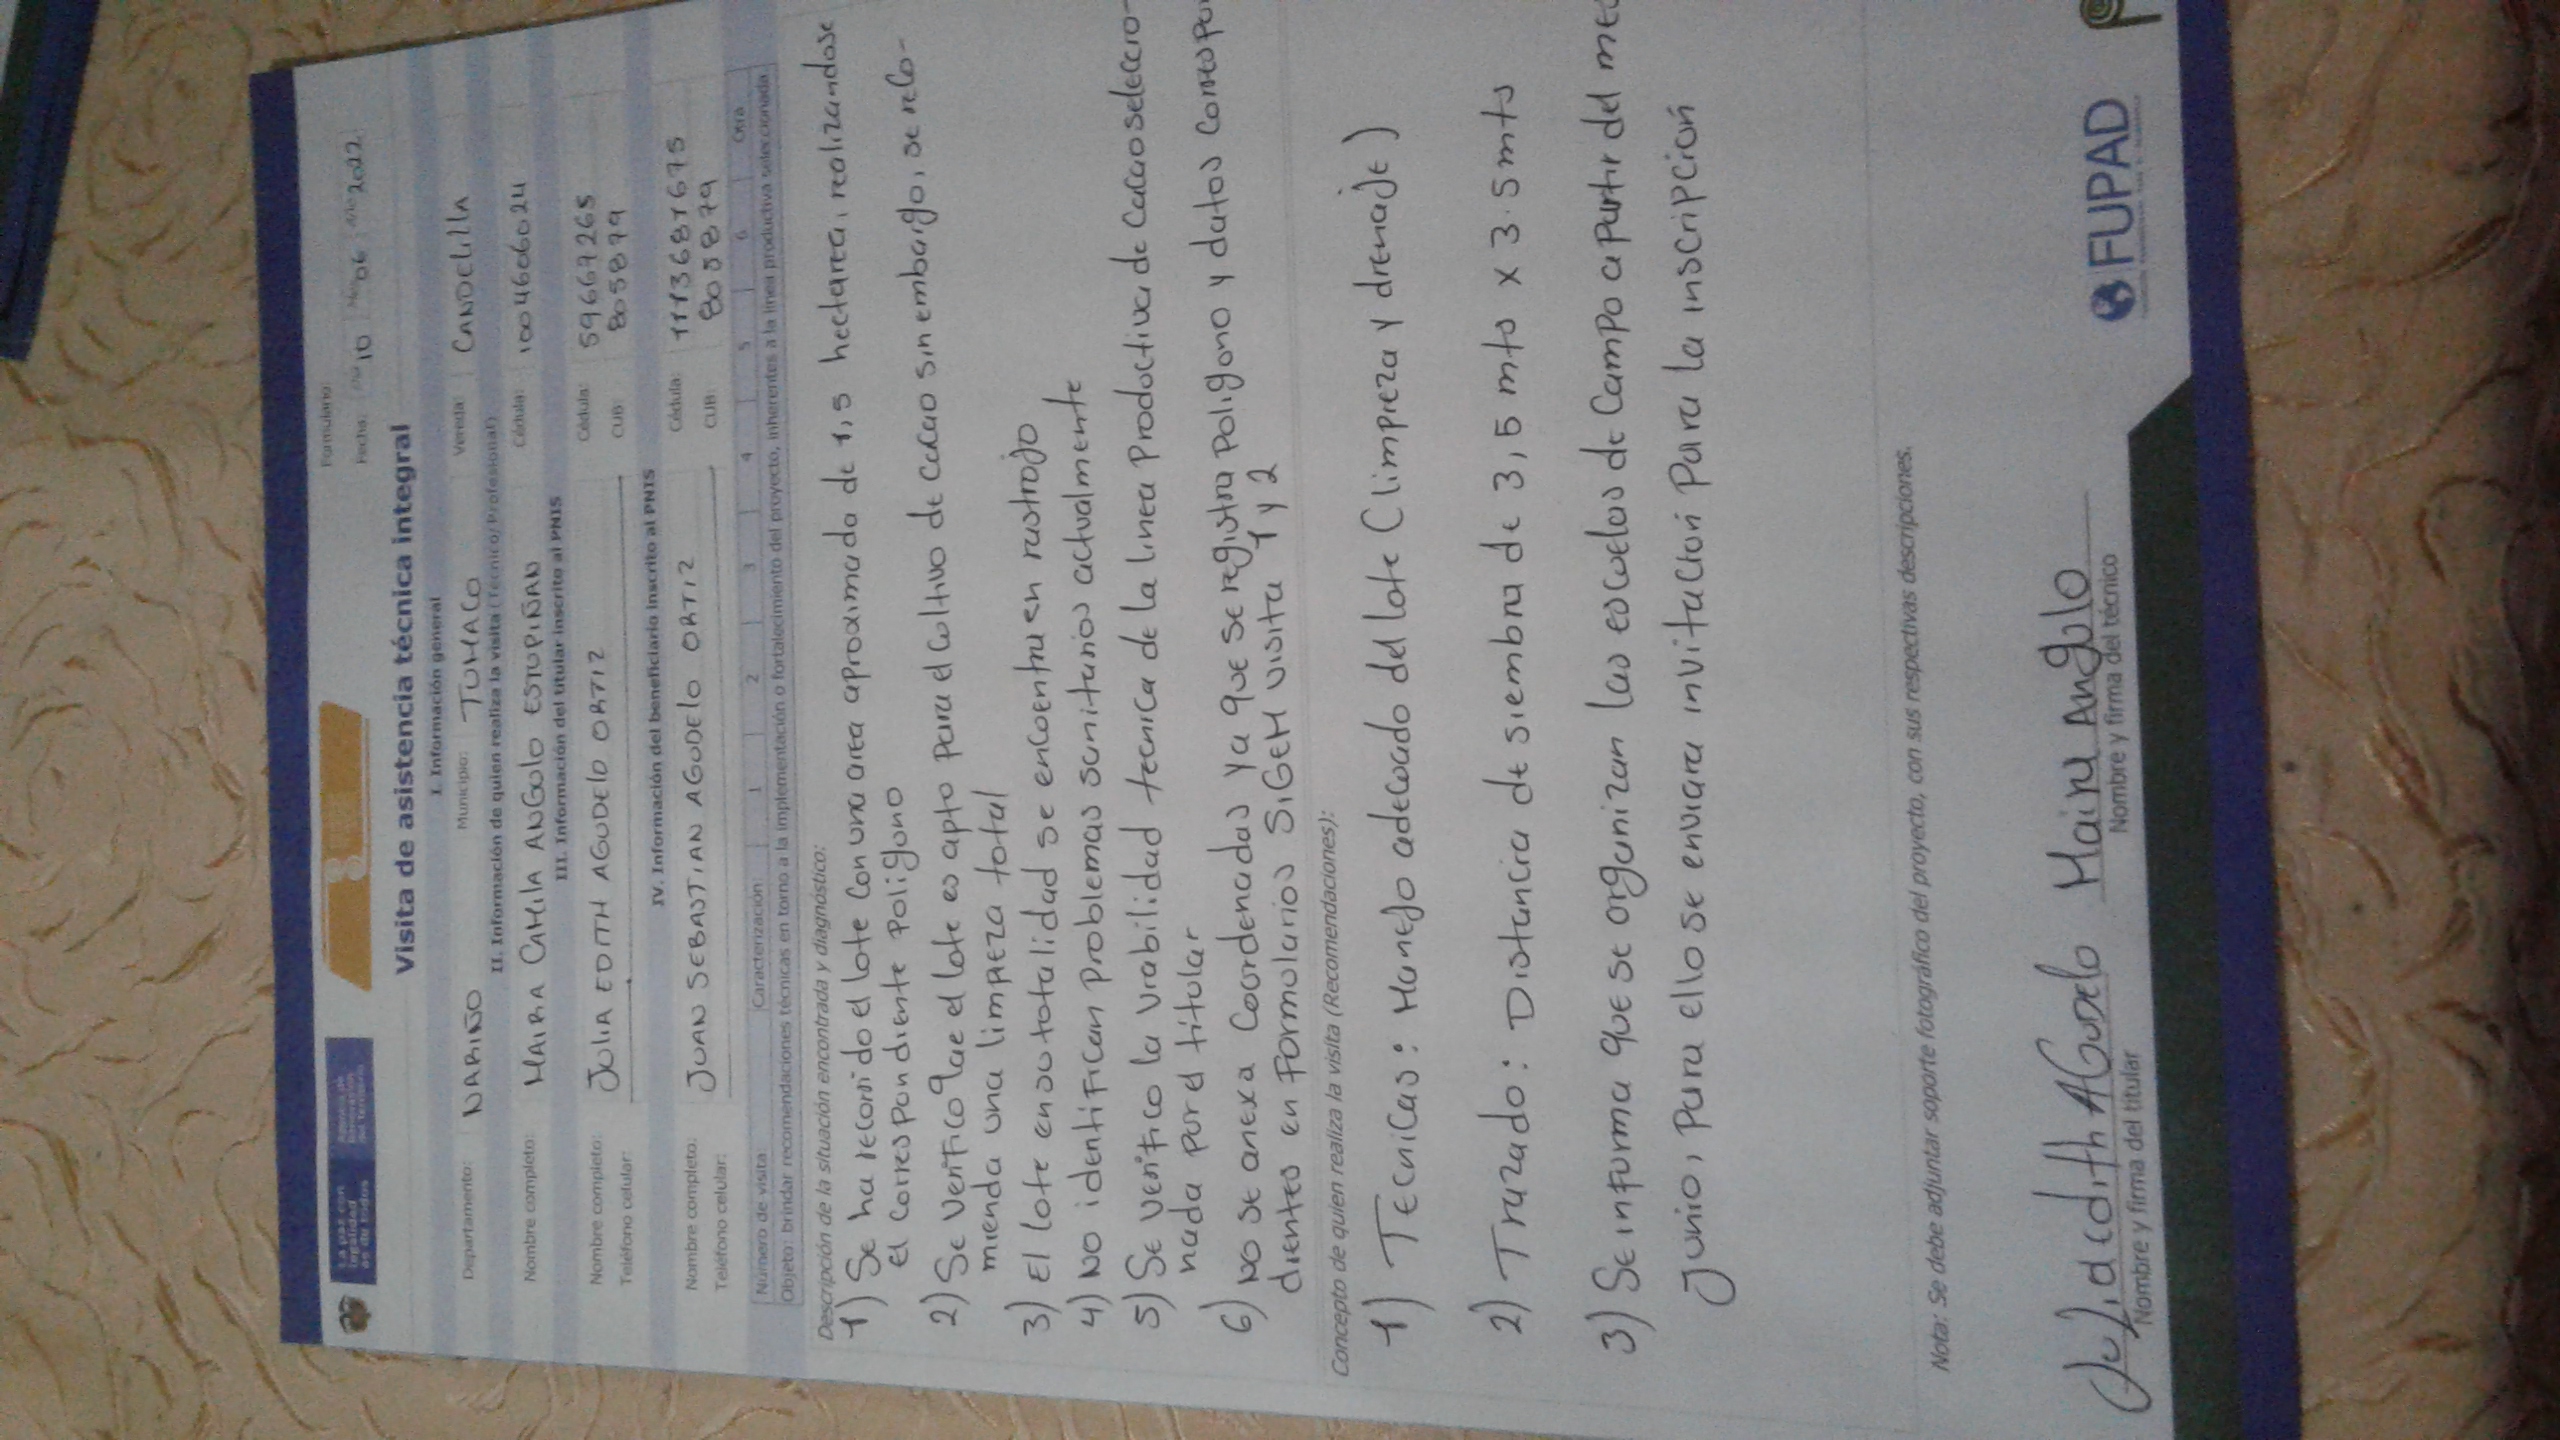 La paz con legalidad es de todos
Agencia de Renovación del Territorio
Formulario:
Fecha: Día 10 Mes 06 Año 2022
Visita de asistencia técnica integral
I. Información general
Departamento: NARIÑO Municipio: TUMACO Vereda: CANDELILLA
II. Información de quien realiza la visita (Técnico/Profesional)
Nombre completo: MAIRA CAMILA ANGULO ESTUPIÑAN Cédula: 1004606024
III. Información del titular inscrito al PNIS
Nombre completo: JULIA EDITH AGUDELO ORTIZ Cédula: 59667265
Teléfono celular: CUB: 805879
IV. Información del beneficiario inscrito al PNIS
Nombre completo: JUAN SEBASTIAN AGUDELO ORTIZ Cédula: 1113681675
Teléfono celular: CUB: 805879
Número de visita: Caracterización: 1 2 3 4 5 6 Otra
Objeto: brindar recomendaciones técnicas en torno a la implementación o fortalecimiento del proyecto, inherentes a la línea productiva seleccionada.
Descripción de la situación encontrada y diagnóstico:
1) Se ha recorrido el lote con una area aproximada de 1,5 hectarea, realizandose
el correspondiente poligono
2) Se verifico que el lote es apto para el cultivo de cacao sin embargo, se reco-
mienda una limpieza total
3) El lote en su totalidad se encuentra en rastrojo
4) No identifican problemas sanitarios actualmente
5) Se verifico la viabilidad tecnica de la linea Productiva de cacao seleccio-
nada por el titular
6) No se anexa coordenadas ya que se registra poligono y datos correspon
dientes en formularios SIGEM visita 1 y 2
Concepto de quien realiza la visita (Recomendaciones):
1) Tecnicas: Manejo adecuado del lote (limpieza y drenaje)
2) Trazado: Distancia de siembra de 3,5 mts x 3.5 mts
3) Se informa que se organizan las escuelas de campo a partir del mes
Junio, para ello se enviara invitación para la inscripción
Nota: Se debe adjuntar soporte fotográfico del proyecto, con sus respectivas descripciones.
Julia edith AGudelo Maira Angulo
Nombre y firma del titular Nombre y firma del técnico
FUPAD